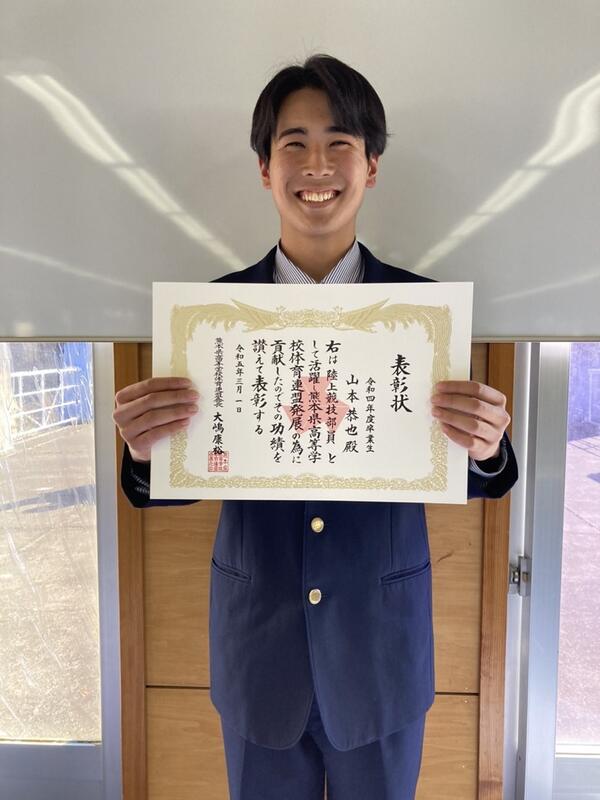 表彰状
令和四年度卒業生
山本恭也殿
右は陸上競技部員と
して活躍し熊本県高等学
校体育連盟発展の為に
貢献したのでその功績を
讃えて表彰する
令和五年三月一日
熊本県高等学校体育連盟会長 大嶋康裕